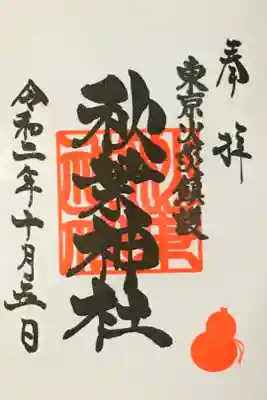 奉拝
東京火災鎮護
秋葉神社
令和二年十月五日